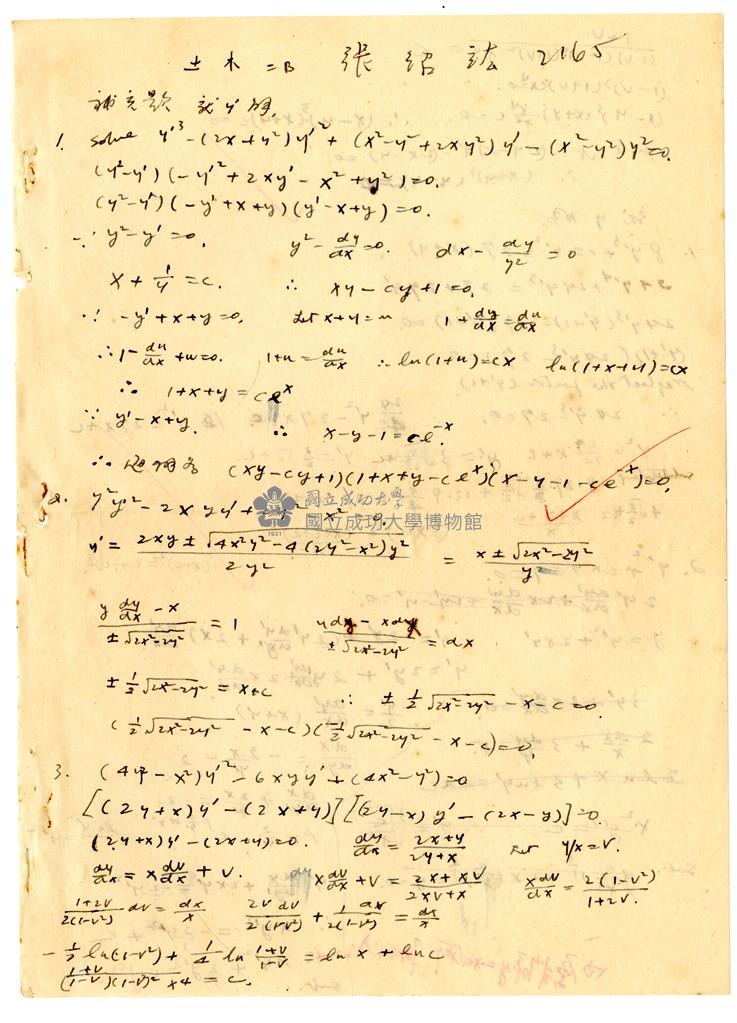 土木二B 張紹誌 2165
補充題 就y'解
1. solve y'³-(2x+y²)y'²+(x²-y²+2xy²)y'-(x²-y²)y²=0.
(y²-y')(-y'²+2xy'-x²+y²)=0.
(y²-y')(-y'+x+y)(y'-x+y)=0.
∵ y²-y'=0, y²-dy/dx=0. dx-dy/y²=0
x+1/y=c. ∴ xy-cy+1=0,
∵ -y'+x+y=0, Let x+y=u 1+dy/dx=du/dx
∴1-du/dx+u=0. 1+u=du/dx ∴ln(1+u)=cx ln(1+x+y)=cx
∴ 1+x+y=ce^x
∵ y'-x+y. ∴ x-y-1=ce^-x
(xy-cy+1)(1+x+y-ce^x)(x-y-1-ce^-x)=0,
2. y²y'²-2xyy'+
國立成功大學
國立成功大學博物館
1931
y'=(2xy±√(4x²y²-4(2y²-x²)y²))/2y² = (x±√(2x²-2y²))/y²
(y dy/dx - x)/(±√(2x²-2y²)) = 1 (ydy-xdx)/(±√(2x²-2y²)) = dx
±½√(2x²-2y²)=x+c ∴ ±½√(2x²-2y²)-x-c=0
(½√(2x²-2y²)-x-c)(-½√(2x²-2y²)-x-c)=0,
3. (4y²-x²)y'²-6xyy'+(4x²-y²)=0
[(2y+x)y'-(2x+y)][(2y-x)y'-(2x-y)]=0.
(2y+x)y'-(2x+y)=0. dy/dx=(2x+y)/(2y+x) Let y/x=v.
dy/dx=x dv/dx+v. x dv/dx+v=(2x+xv)/(2xv+x) xdv/dx=2(1-v²)/(1+2v).
(1+2v)/(2(1-v²)) dv=dx/x 2v dv/(2(1-v²))+1/(2(1-v²)) dv=dx/x
-½ln(1-v²)+¼ln (1+v)/(1-v)=ln x+ln c
(1+v)/((1-v)(1-v)²x4)=c.